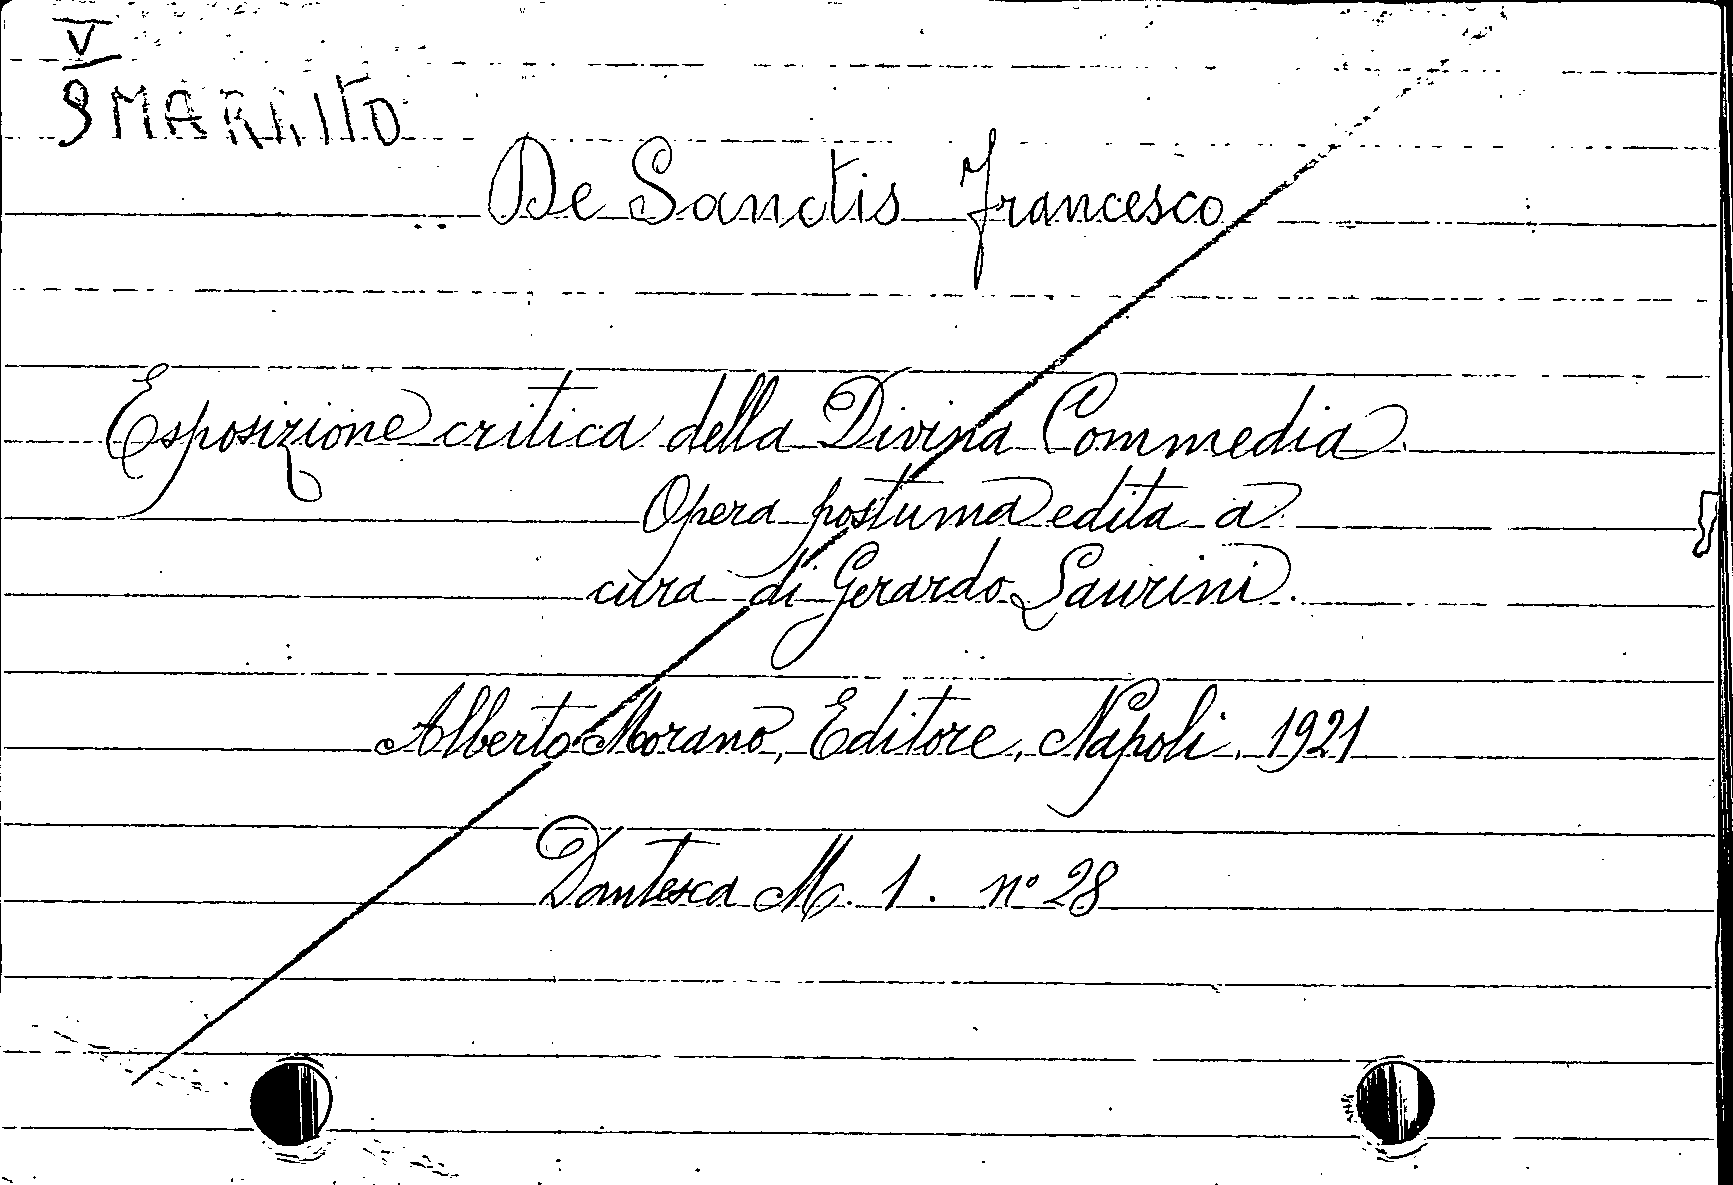 V
SMARRITO
De Sanctis Francesco
Esposizione critica della Divina Commedia.
Opera postuma edita a
cura di Gerardo Laurini.
Alberto Morano, Editore, Napoli, 1921
Dantesca M. 1. n° 28